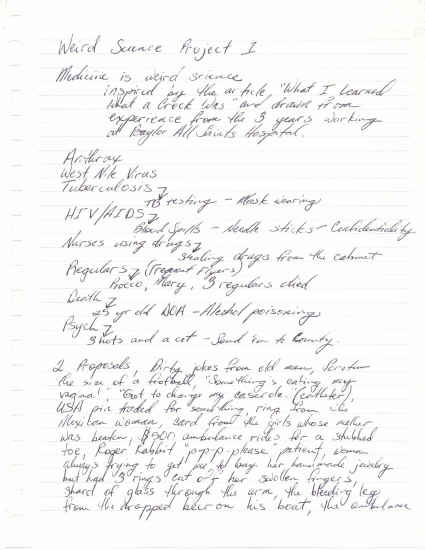 Weird Science Project 1
Medicine is weird science
inspired by the article, "What I Learned
What a Crock Was" and drawn from
experience from the 3 years working
at Baylor All Saints Hospital.
Anthrax
West Nile Virus
Tuberculosis
TB testing - Mask wearing
HIV/AIDS
Blood Spills - Needle sticks - Confidentiality
Nurses using drugs
stealing drugs from the cabinet
Regulars (frequent flyers)
Rocco, Mary, 3 regulars died
Death
25 yr old DOA - Alcohol poisoning
Psych
3 hots and a cot - Send 'em to County.
2 Proposals, Dirty jokes from old men, Scrotum
the size of a football, "Something's eating my
vagina!", "Got to change my casserole." (catheter),
USA pin traded for something, ring from the
Mexican women, card from the girls whose mother
was beaten, $500 ambulance rides for a stubbed
toe, Roger Rabbit "p-p-p-please" patient, woman
always trying to get me to buy her handmade jewelry
but had 3 rings cut off her swollen fingers,
shard of glass through the arm, the bleeding leg
from the dropped beer on his boat, the ambulance